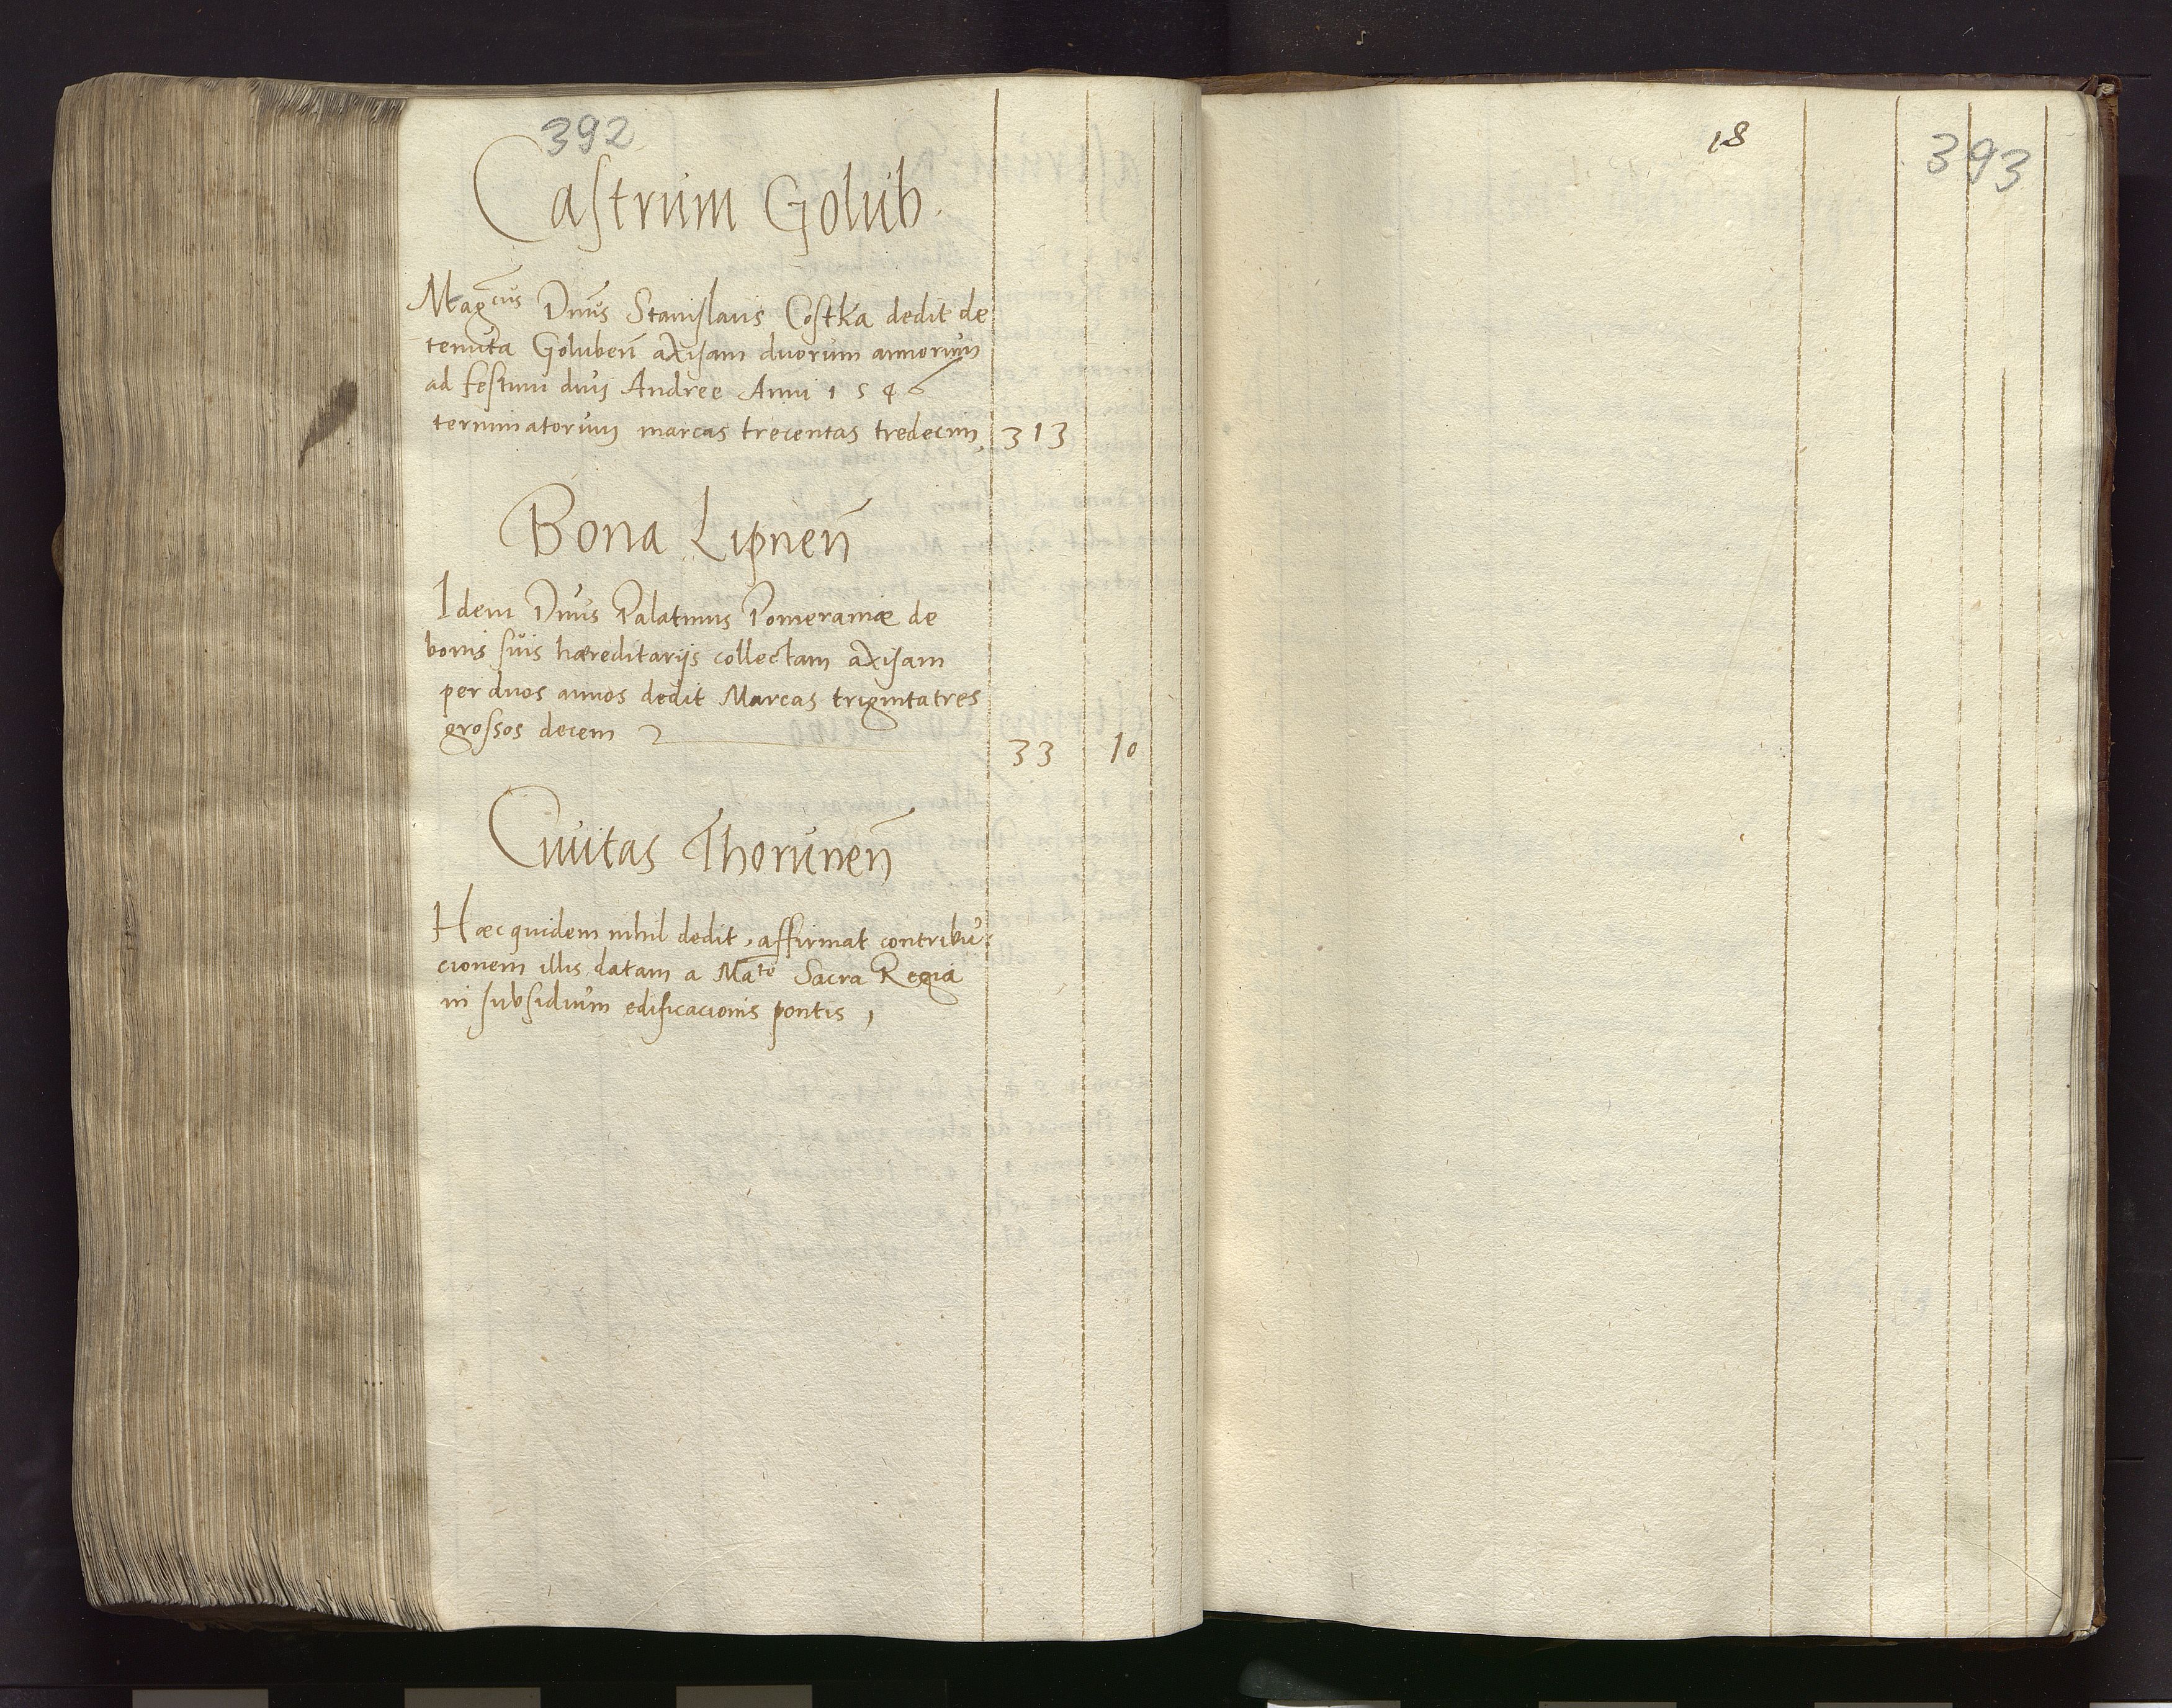 392
Castrum Golub.
Mag^cus Dnus Stanislaus Costka dedit de
tenuta Goluben̄ axisam duorum annorum
ad festum divi Andree Anni 1546
terminatorum marcas trecentas tredecim, 313
Bona Lipnen̄
Idem Dnus Palatinus Pomeraniæ de
bonis suis hæreditariis collectam axisam
per duos annos dedit Marcas triginta tres
grossos decem 33 10
Civitas Thorunen̄
Hæc quidem nihil dedit, affirmat contribu:
cionem illis datam a Ma^te Sacra Regia
in subsidium edificacionis pontis,
18
393